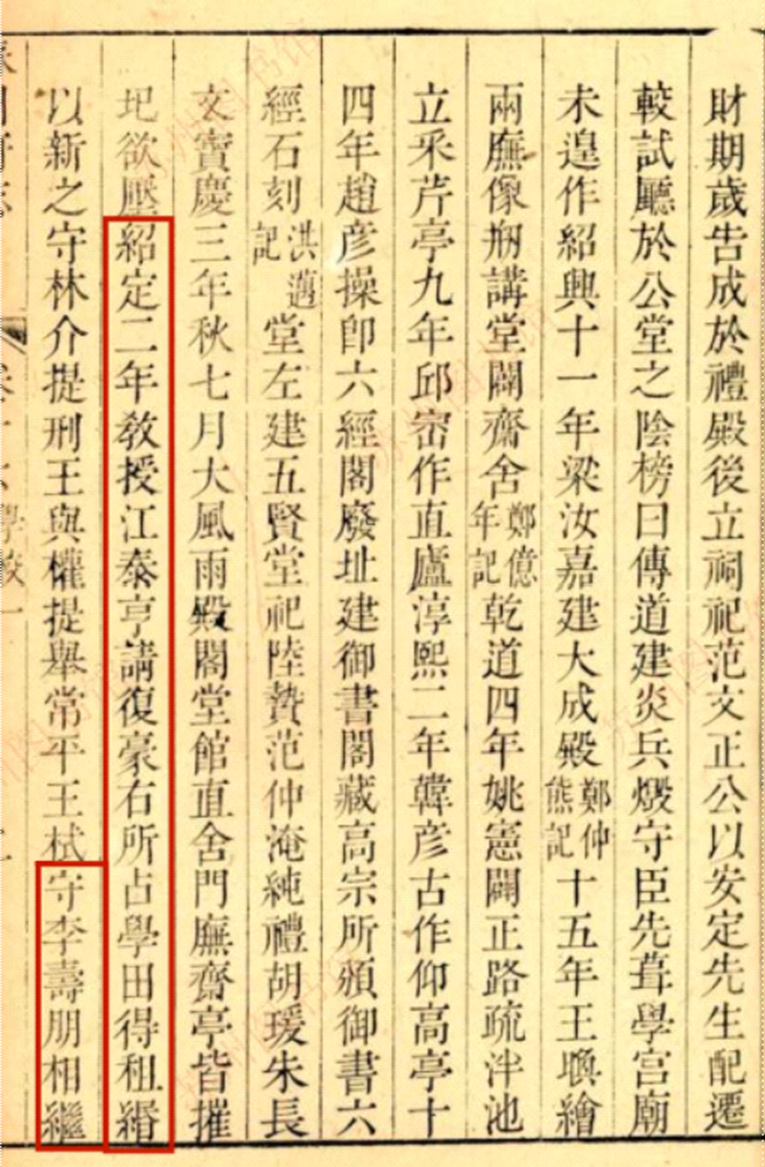 財期歲告成於禮殿後立祠祀范文正公以安定先生配遷
較試廳於公堂之陰榜曰傳道建炎兵燬守臣先葺學宫廟
未遑作紹興十一年梁汝嘉建大成殿鄭仲熊記十五年王㬇繪
兩廡像刱講堂闢齋舍鄭億年記乾道四年姚憲闢正路疏泮池
立釆芹亭九年邱崈作直廬淳熙二年韓彦古作仰高亭十
四年趙彦操卽六經閣廢址建御書閣藏高宗所頒御書六
經石刻洪邁記堂左建五賢堂祀陸贄范仲淹純禮胡瑗朱長
文寶慶三年秋七月大風雨殿閣堂館直舍門廡齋亭皆摧
圯欲壓紹定二年敎授江泰亨請復豪右所占學田得租緡
以新之守林介提刑王與權提舉常平王栻守李壽朋相繼